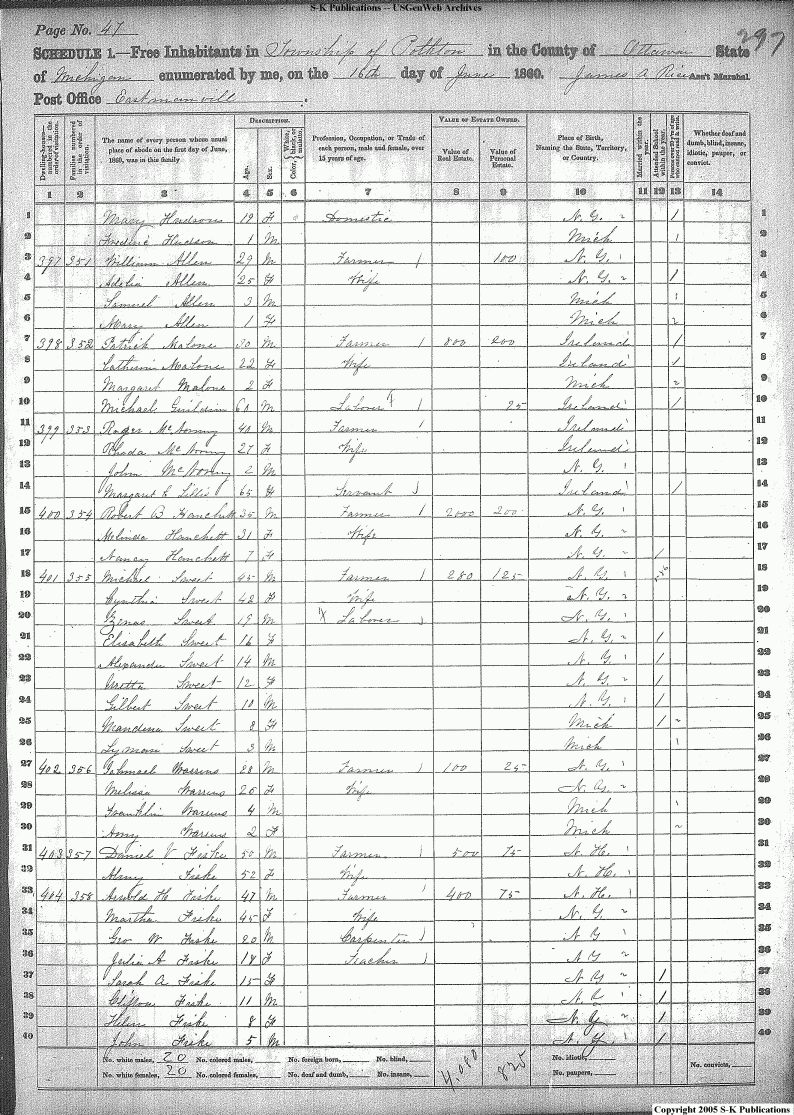 S-K Publications -- USGenWeb Archives
Page No. 47
297
SCHEDULE 1.—Free Inhabitants in Township of Polkton in the County of Ottawa State
of Michigan enumerated by me, on the 16th day of June 1860. James A Rice Ass't Marshal
Post Office Eastmanville.
Dwelling-houses—numbered in the order of visitation.
Families numbered in the order of visitation.
The name of every person whose usual place of abode on the first day of June, 1860, was in this family.
DESCRIPTION.
Age.
Sex.
Color, White, black, or mulatto.
Profession, Occupation, or Trade of each person, male and female, over 15 years of age.
VALUE OF ESTATE OWNED.
Value of Real Estate.
Value of Personal Estate.
Place of Birth, Naming the State, Territory, or Country.
Married within the year.
Attended School within the year.
Whether deaf and dumb, blind, insane, idiotic, pauper, or convict.
1 2 3 4 5 6 7 8 9 10 11 12 13 14
1 Mary Hudson 19 F Domestic N. Y. / 1
2 Frederic Hudson 1 M Mich 2
3 397 351 William Allen 29 M Farmer 1 100 N. Y. 3
4 Adelia Allen 25 F Wife N. Y. / 4
5 Samuel Allen 3 M Mich 5
6 Mary Allen 1 F Mich 6
7 398 352 Patrick Malone 30 M Farmer 1 800 200 Ireland / 7
8 Catherine Malone 22 F Wife Ireland / 8
9 Margaret Malone 2 F Mich 9
10 Michael 60 M Laborer 25 Ireland / 10
11 399 353 Roger 40 M Farmer Ireland 11
12 Rhoda 27 F Wife Ireland 12
13 John 2 M N. Y. 13
14 Margaret Lillis 65 F Servant Ireland / 14
15 400 354 Robert B Hanchett 35 M Farmer 1 2000 200 N. Y. 15
16 Melinda Hanchett 31 F Wife N. Y. 16
17 Nancy Hanchett 7 F N. Y. / 17
18 401 355 Michael Sweet 45 M Farmer 1 280 125 N. Y. 18
19 Cynthia Sweet 42 F Wife N. Y. 19
20 Zenas Sweet 19 M Laborer N. Y. 20
21 Elisabeth Sweet 16 F N. Y. / 21
22 Alexander Sweet 14 M N. Y. / 22
23 Sweet 12 F N. Y. / 23
24 Gilbert Sweet 10 M N. Y. / 24
25 Sweet 8 F Mich / 25
26 Lyman Sweet 3 M Mich 26
27 402 356 Ishmael Warrens 28 M Farmer 1 100 25 N. Y. 27
28 Melissa Warrens 26 F Wife N. Y. 28
29 Franklin Warrens 4 M Mich 29
30 Amy Warrens 2 F Mich 30
31 403 357 Daniel V Fiske 50 M Farmer 1 500 75 N. H. 31
32 Almy Fiske 52 F Wife N. H. 32
33 404 358 Arnold H Fiske 47 M Farmer 400 75 N. H. 33
34 Martha Fiske 45 F Wife N. Y. 34
35 Geo W Fiske 20 M Carpenter N Y 35
36 Julia A Fiske 18 F Teacher N Y 36
37 Sarah A Fiske 15 F N Y / 37
38 Clifton Fiske 11 M N. Y / 38
39 Helen Fiske 8 F N. Y / 39
40 John Fiske 5 M N. Y / 40
No. white males, 20 No. colored males, No. foreign born, No. blind, 4,080 825 No. idiotic, No. convicts,
No. white females, 20 No. colored females, No. deaf and dumb, No. insane, No. paupers,
Copyright 2005 S-K Publications